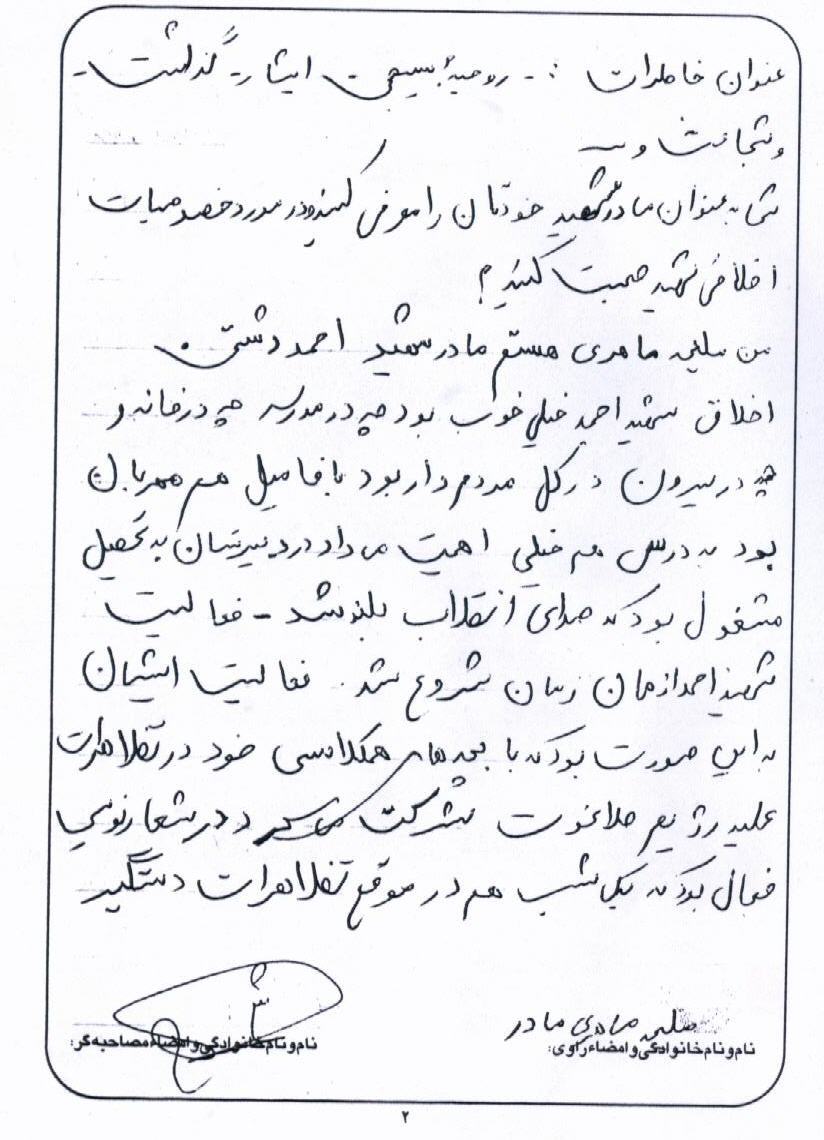 عنوان خاطرات :- روحیهٔ بسیجی - ایثار - گذشت -
و شجاعت و
شما به عنوان مادر شهید خودتان را معرفی کنید و در مورد خصوصیات
اخلاقی شهید صحبت کنید؟
من هستم مادر شهید احمد دشتی .
اخلاق شهید احمد خیلی خوب بود چه در مدرسه چه در خانه و
چه در بیرون در کل مردم دار بود با فامیل هم مهربان
بود به درس هم خیلی اهمیت می داد در دبیرستان به تحصیل
مشغول بود که صدای انقلاب بلند شد - فعالیت
شهید احمد از همان زمان شروع شد . فعالیت ایشان
به این صورت بود که با بچه های همکلاسی خود در تظاهرات
علیه رژیم طاغوت شرکت می کرد و در شعارنویسی
فعال بود که یک شب هم در موقع تظاهرات دستگیر
مادر
نام و نام خانوادگی و امضاء راوی:
نام و نام خانوادگی و امضاء مصاحبه گر:
۲